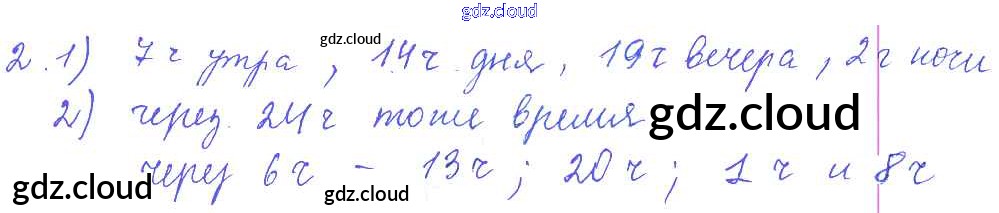 gdz.cloud
2.1) 7ч утра, 14ч дня, 19ч вечера, 2ч ночи
gdz.cloud
2) через 24ч тоже время
gdz.cloud
через 6ч - 13ч; 20ч; 1ч и 8ч
gdz.cloud
gdz.cloud